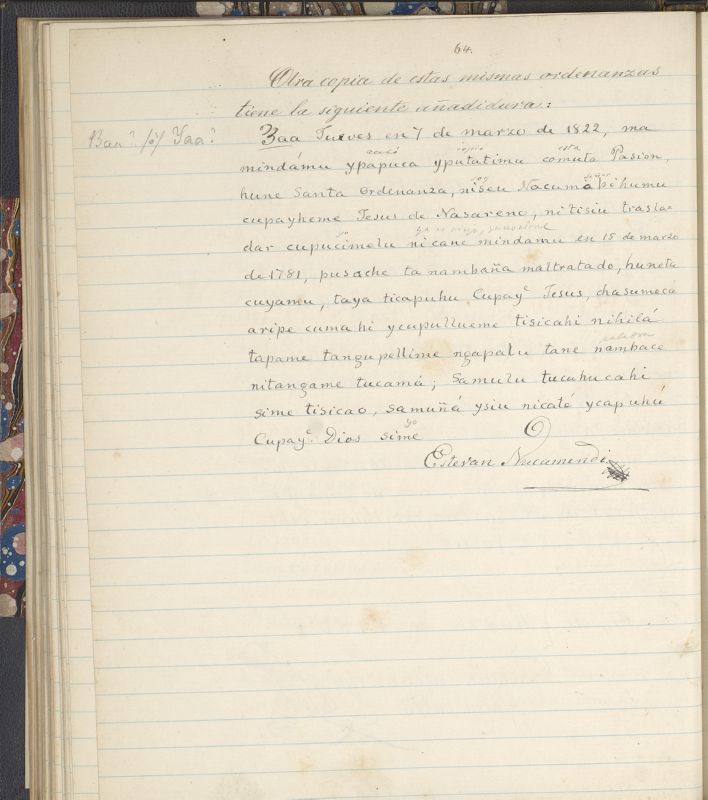 64.
Otra copia de estas mismas ordenanzas
tiene la siguiente añadidura:
Baa Jueves en 7 de marzo de 1822, ma
Bau? ó Yaa?
mindámu ypapuca yputatimu comuta Pasion,
hune Santa ordenanza, niseu Nacuma bóhumu
cupayheme Jesus de Nasareno, nitisiu trasla-
dar cupucimelu nicane mindamu en 15 de marzo
de 1781, pusache ta nambaña maltratado, huneta
cuyamu, taya ticapuhu Cupayc Jesus, chasumecá
aripe cumahi ycupullueme tisicahi nihilá
tapame tangupellime ngapatu tane nambace
nitangame tucamá; samulu tucuhucahi
sime tisicao, samuñá ysiu nicaté ycapuhú
yo
Cupayc Dios sime
Estevan Nucamendi